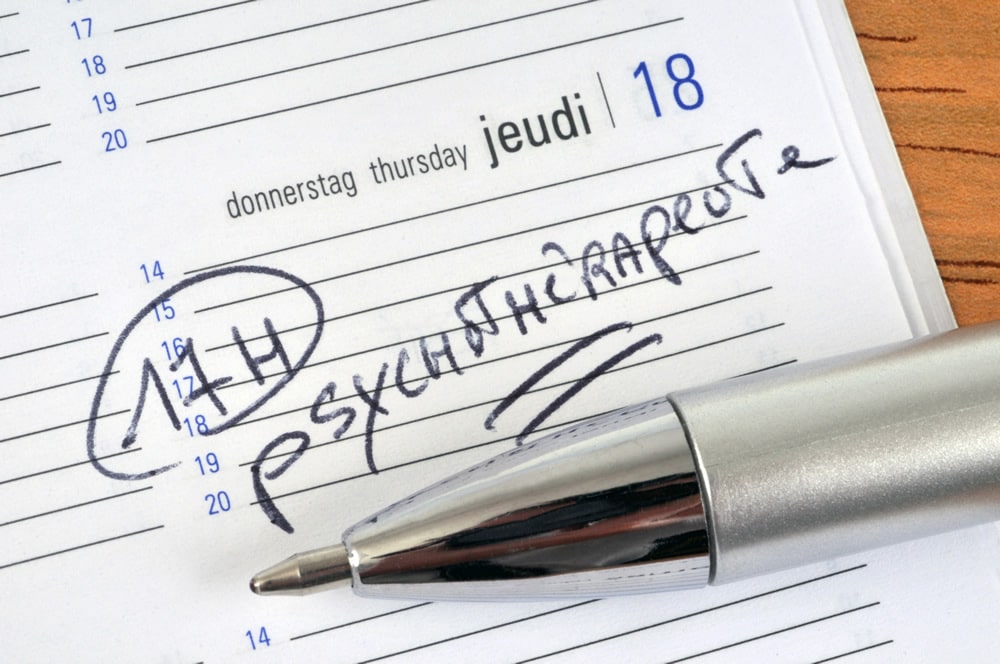 17
18
19
20
donnerstag thursday jeudi | 18
14
15
16
17
18
19
20
17H
psychothérapeute
14